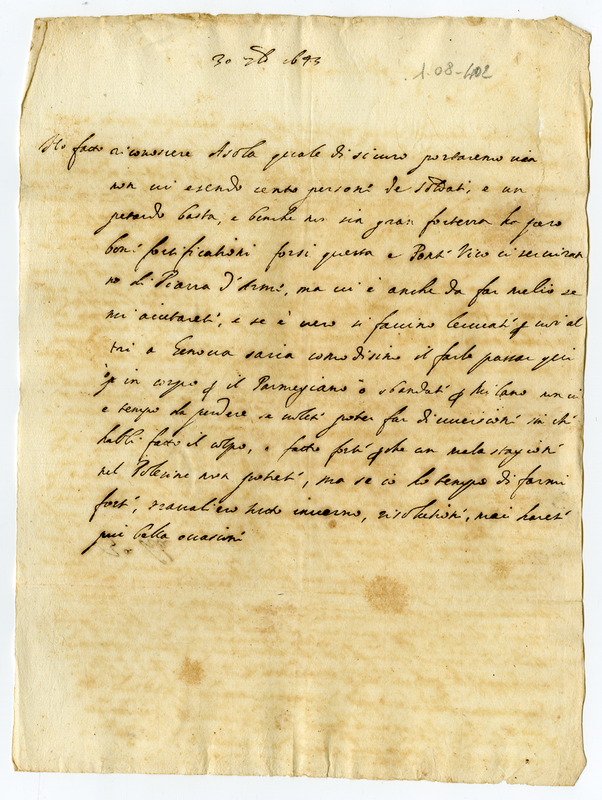 30 7bre 1643
1·08-402
Ho fatto riconoscere Asola quale di sicuro portaremo via
non vi esendo cento personi de soldati, e un
petardo basta, e benche non sia gran fortezza ha pero
boni fortificationi forsi questa e Ponti Vico ci serviran
no di Piazza d'Armi, ma vi è anche da far melio se
mi aiutareti, e se è vero si faccino levati p voi al
tri a Genova saria comodisimo il farli passar qui
in corpo p il Parmegiano o sbandati p Milano non ci
e tempo da perdere se voleti poter far diversioni sin ch'
habbi fatto il colpo, e fatto forti che un mela stagioni
nel Polesine non potreti, ma se io ho tempo di farmi
forti, travaliero tutto inverno, risolutioni, mai hareti
piu bella occasioni